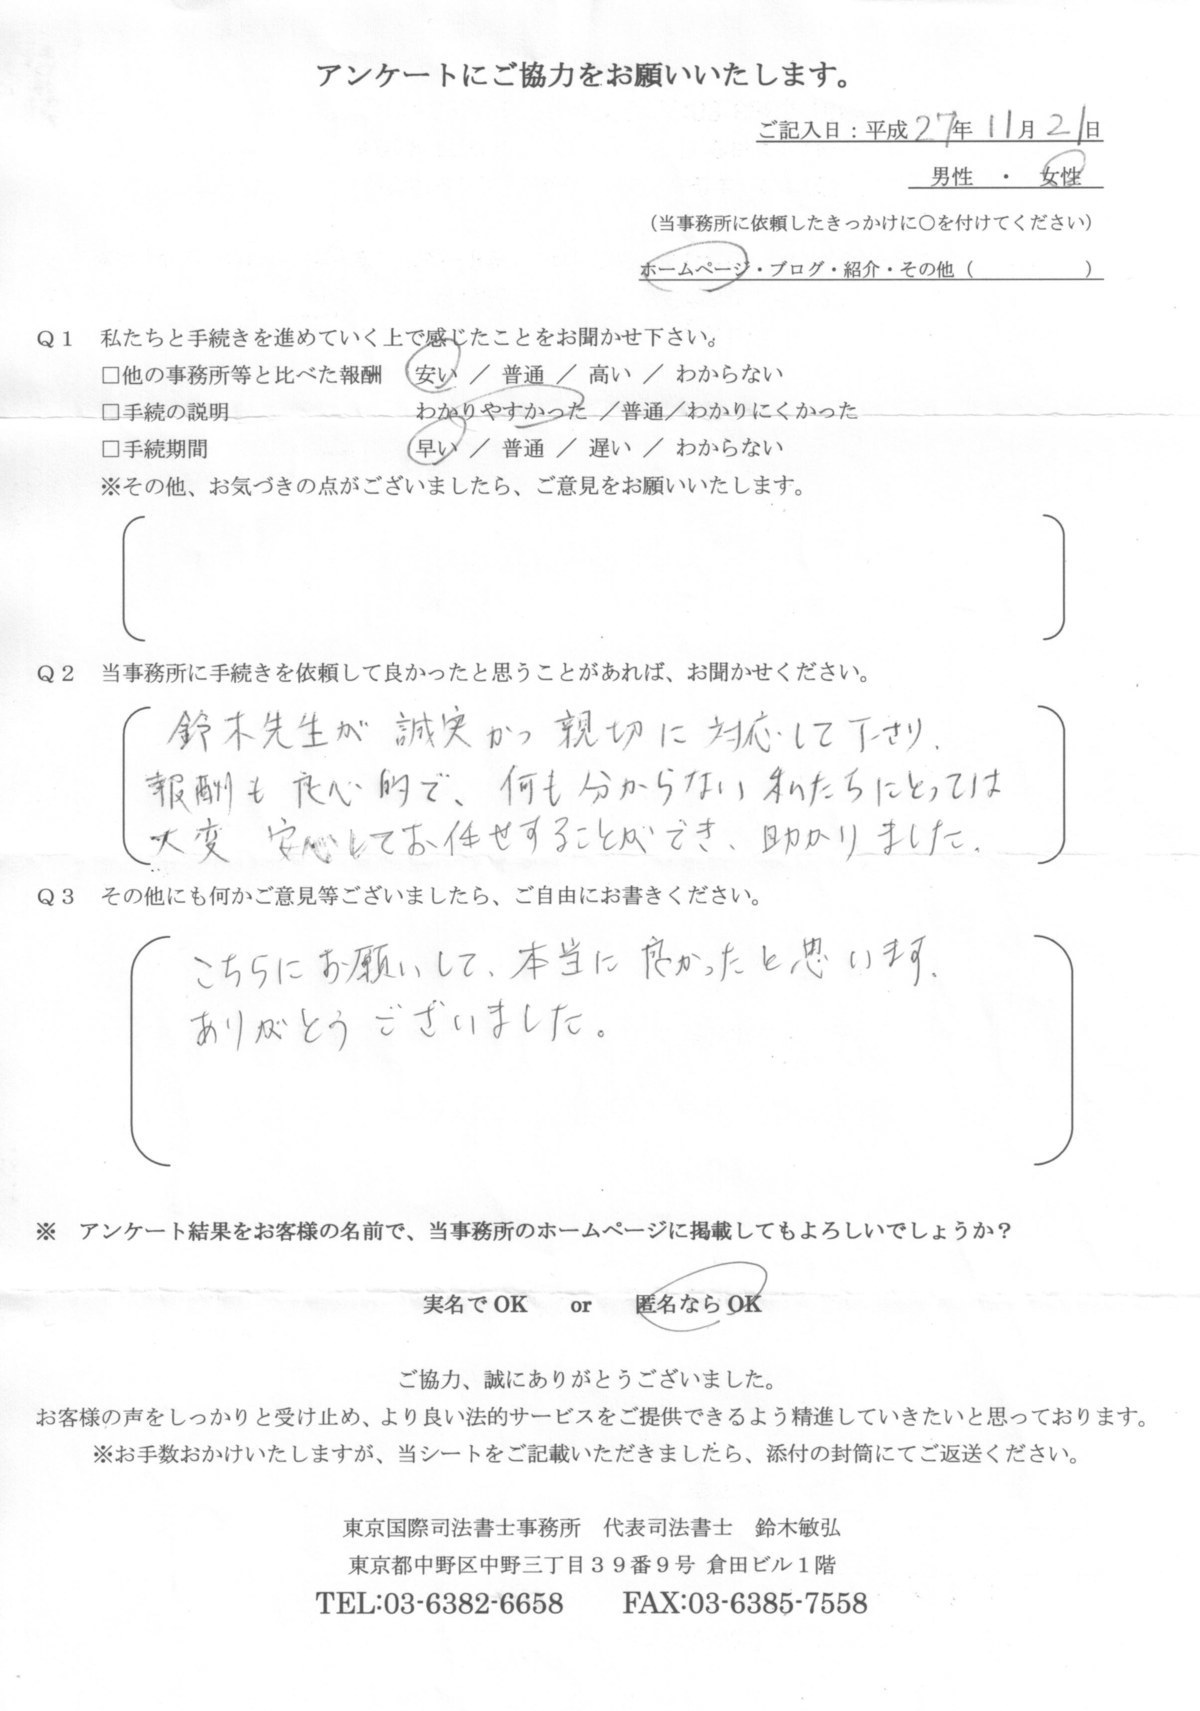 アンケートにご協力をお願いいたします。
ご記入日：平成27年11月21日
男性　・　女性
（当事務所に依頼したきっかけに〇を付けてください）
ホームページ・ブログ・紹介・その他（　　　　　　）
Ｑ１　私たちと手続きを進めていく上で感じたことをお聞かせ下さい。
□他の事務所等と比べた報酬　安い ／ 普通 ／ 高い ／ わからない
□手続の説明　わかりやすかった ／普通／わかりにくかった
□手続期間　早い ／ 普通 ／ 遅い ／ わからない
※その他、お気づきの点がございましたら、ご意見をお願いいたします。
Ｑ２　当事務所に手続きを依頼して良かったと思うことがあれば、お聞かせください。
鈴木先生が 誠実かつ 親切に 対応して下さり、
報酬も 良心的で、何も分からない 私たちにとっては
大変 安心してお任せすることができ、助かりました。
Ｑ３　その他にも何かご意見等ございましたら、ご自由にお書きください。
こちらにお願いして、本当に良かったと思います。
ありがとうございました。
※　アンケート結果をお客様の名前で、当事務所のホームページに掲載してもよろしいでしょうか？
実名でOK　　or　　匿名ならOK
ご協力、誠にありがとうございました。
お客様の声をしっかりと受け止め、より良い法的サービスをご提供できるよう精進していきたいと思っております。
※お手数おかけいたしますが、当シートをご記載いただきましたら、添付の封筒にてご返送ください。
東京国際司法書士事務所　代表司法書士　鈴木敏弘
東京都中野区中野三丁目３９番９号 倉田ビル１階
TEL:03-6382-6658　　FAX:03-6385-7558